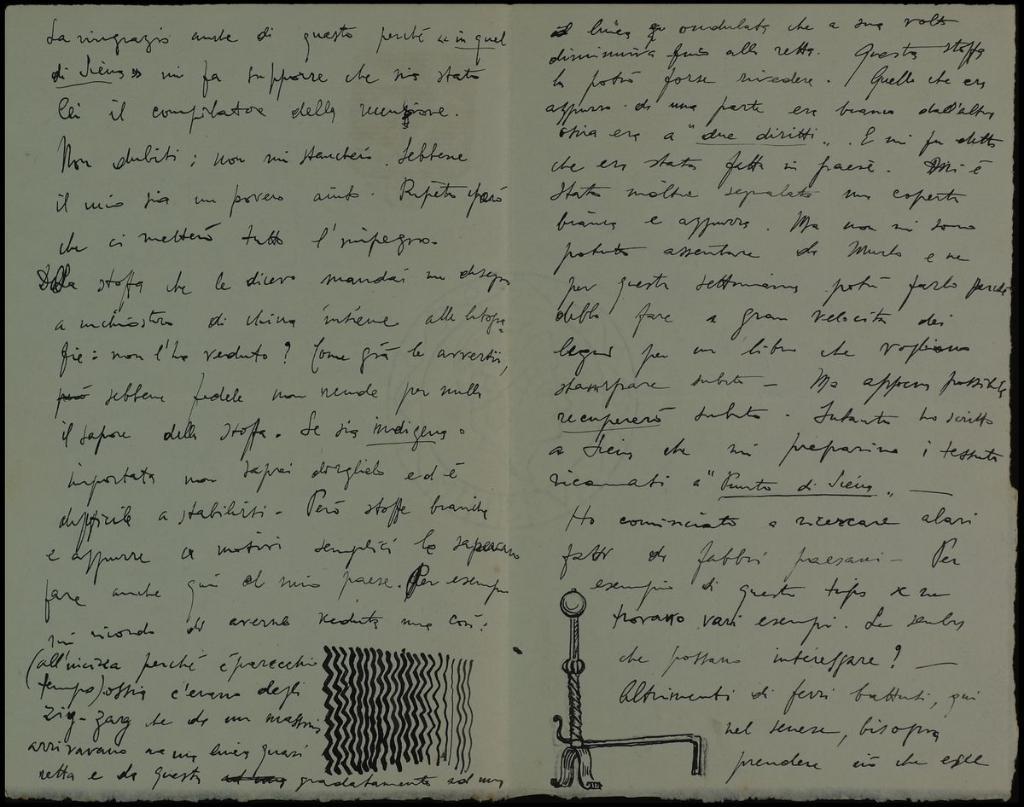 La ringrazio anche di questo perché "in quel
di Siena" mi fa supporre che sia stato
lei il compilatore della recensione.
Non dubiti; non mi stancherò. Sebbene
il mio sia un povero aiuto. Ripeto però
che ci metterò tutto l'impegno.
Della stoffa che le dicevo mandai un disegno
a inchiostro di china insieme alle litogra-
fie: non l'ha veduto? Come già le avvertii,
però sebbene fedele non rende per nulla
il sapore della stoffa. Se sia indigena o
importata non saprei dirglielo ed è
difficile a stabilirsi. Però stoffe bianche
e azzurre a motivi semplici le sapevano
fare anche qui al mio paese. Per esempio
mi ricordo di averne veduta una così:
(all'incirca perché è parecchio
tempo) ossia c'erano degli
zig-zag che da un massimo
arrivavano a una linea quasi
retta e da questa gradatamente ad una
linea ondulata che a sua volta
diminuiva fino alla retta. Questa stoffa
la potrò forse rivedere. Quello che era
azzurro da una parte era bianco dall'altra
ossia era a "due diritti". E mi fu detto
che era stata fatta in paese. Mi è
stata inoltre segnalata una coperta
bianca e azzurra. Ma non mi sono
potuto assentare da Murlo e ne
per questa settimana potrò farlo perché
debbo fare a gran velocità dei
legni per un libro che vogliono
stampare subito. Ma appena possibile
recupererò subito. Intanto ho scritto
a Siena che mi preparino i tessuti
ricamati a "Punto di Siena" —
Ho cominciato a ricercare alari
fatti da fabbri paesani — Per
esempio di questo tipo se ne
trovano vari esempi. Le sembra
che possano interessare? —
Altrimenti di ferri battuti, qui
nel senese, bisogna
prendere ciò che esce